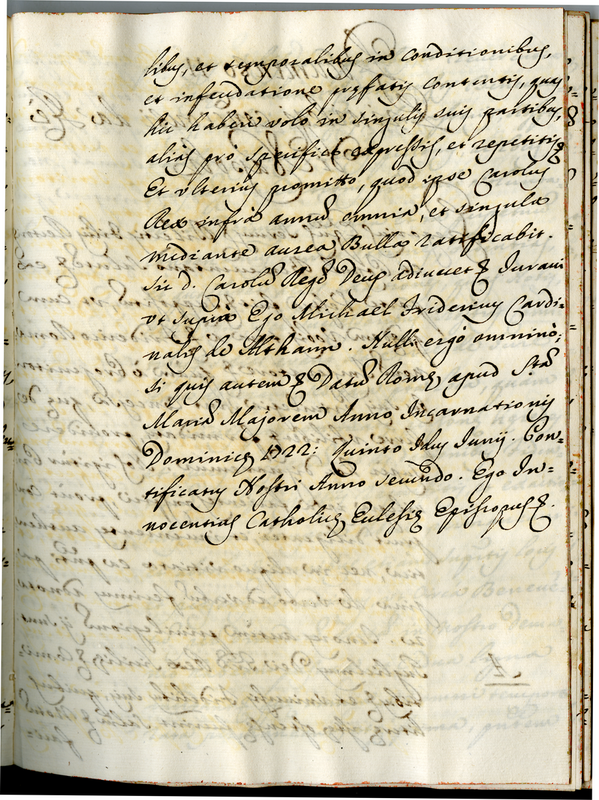 libus, et temporalibus in conditionibus,
et infeudatione præfatis contentis, quas
hic haberi volo in singulis suis partibus,
alias pro specifice expressis, et repetitis &
Et ulterius promitto, quod ipse Carolus
Rex infra annũ omnia, et singula
mediante aurea Bulla ratificabit.
sic d. Carolũ Regẽ Deus adiuvet & Juravi
ut supra Ego Michael Fridericus Cardi=
nalis de Althann. Nulli ergo omninò;
si quis autem & Datũ Romę apud Stã
Mariã Majorem Anno Incarnationis
Dominicę 1722: Quinto Idus Junij. Pon=
tificatus Nostri Anno secundo. Ego In=
nocentius Catholicę Eclesię Episcopus &.